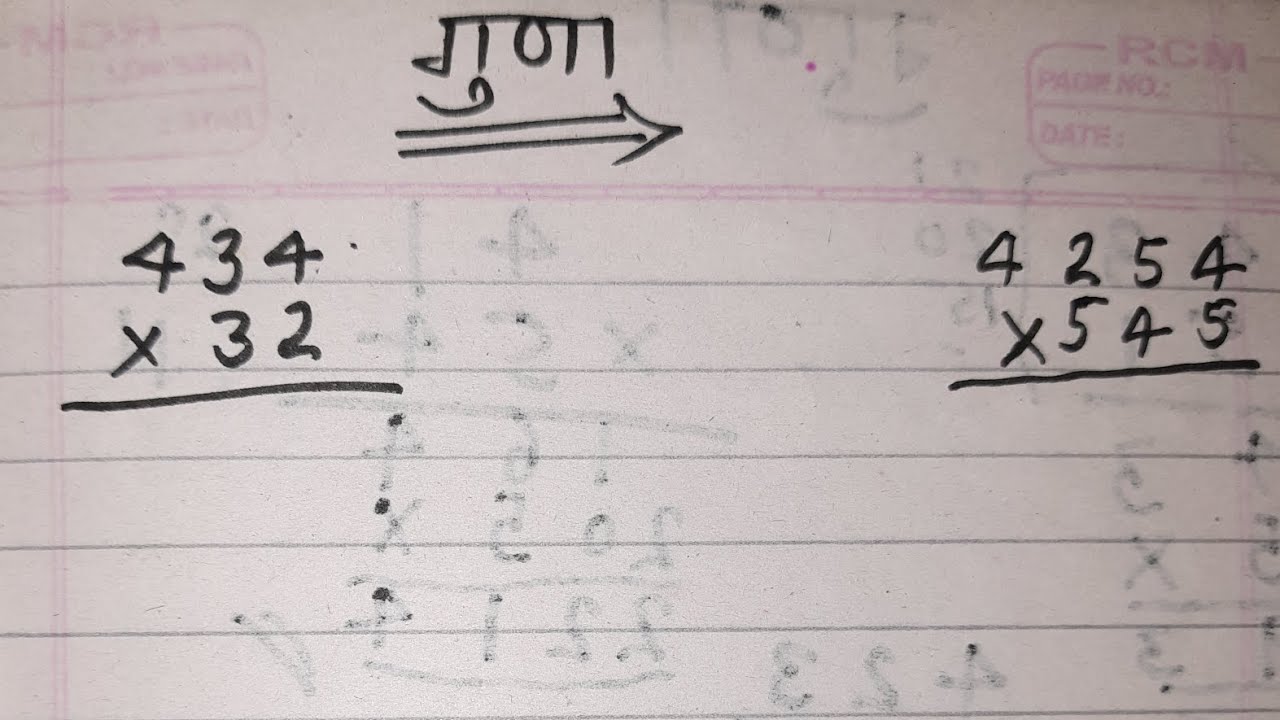 गुणा
RCM
PAGE NO.:
DATE:
434
x 32
4254
x545